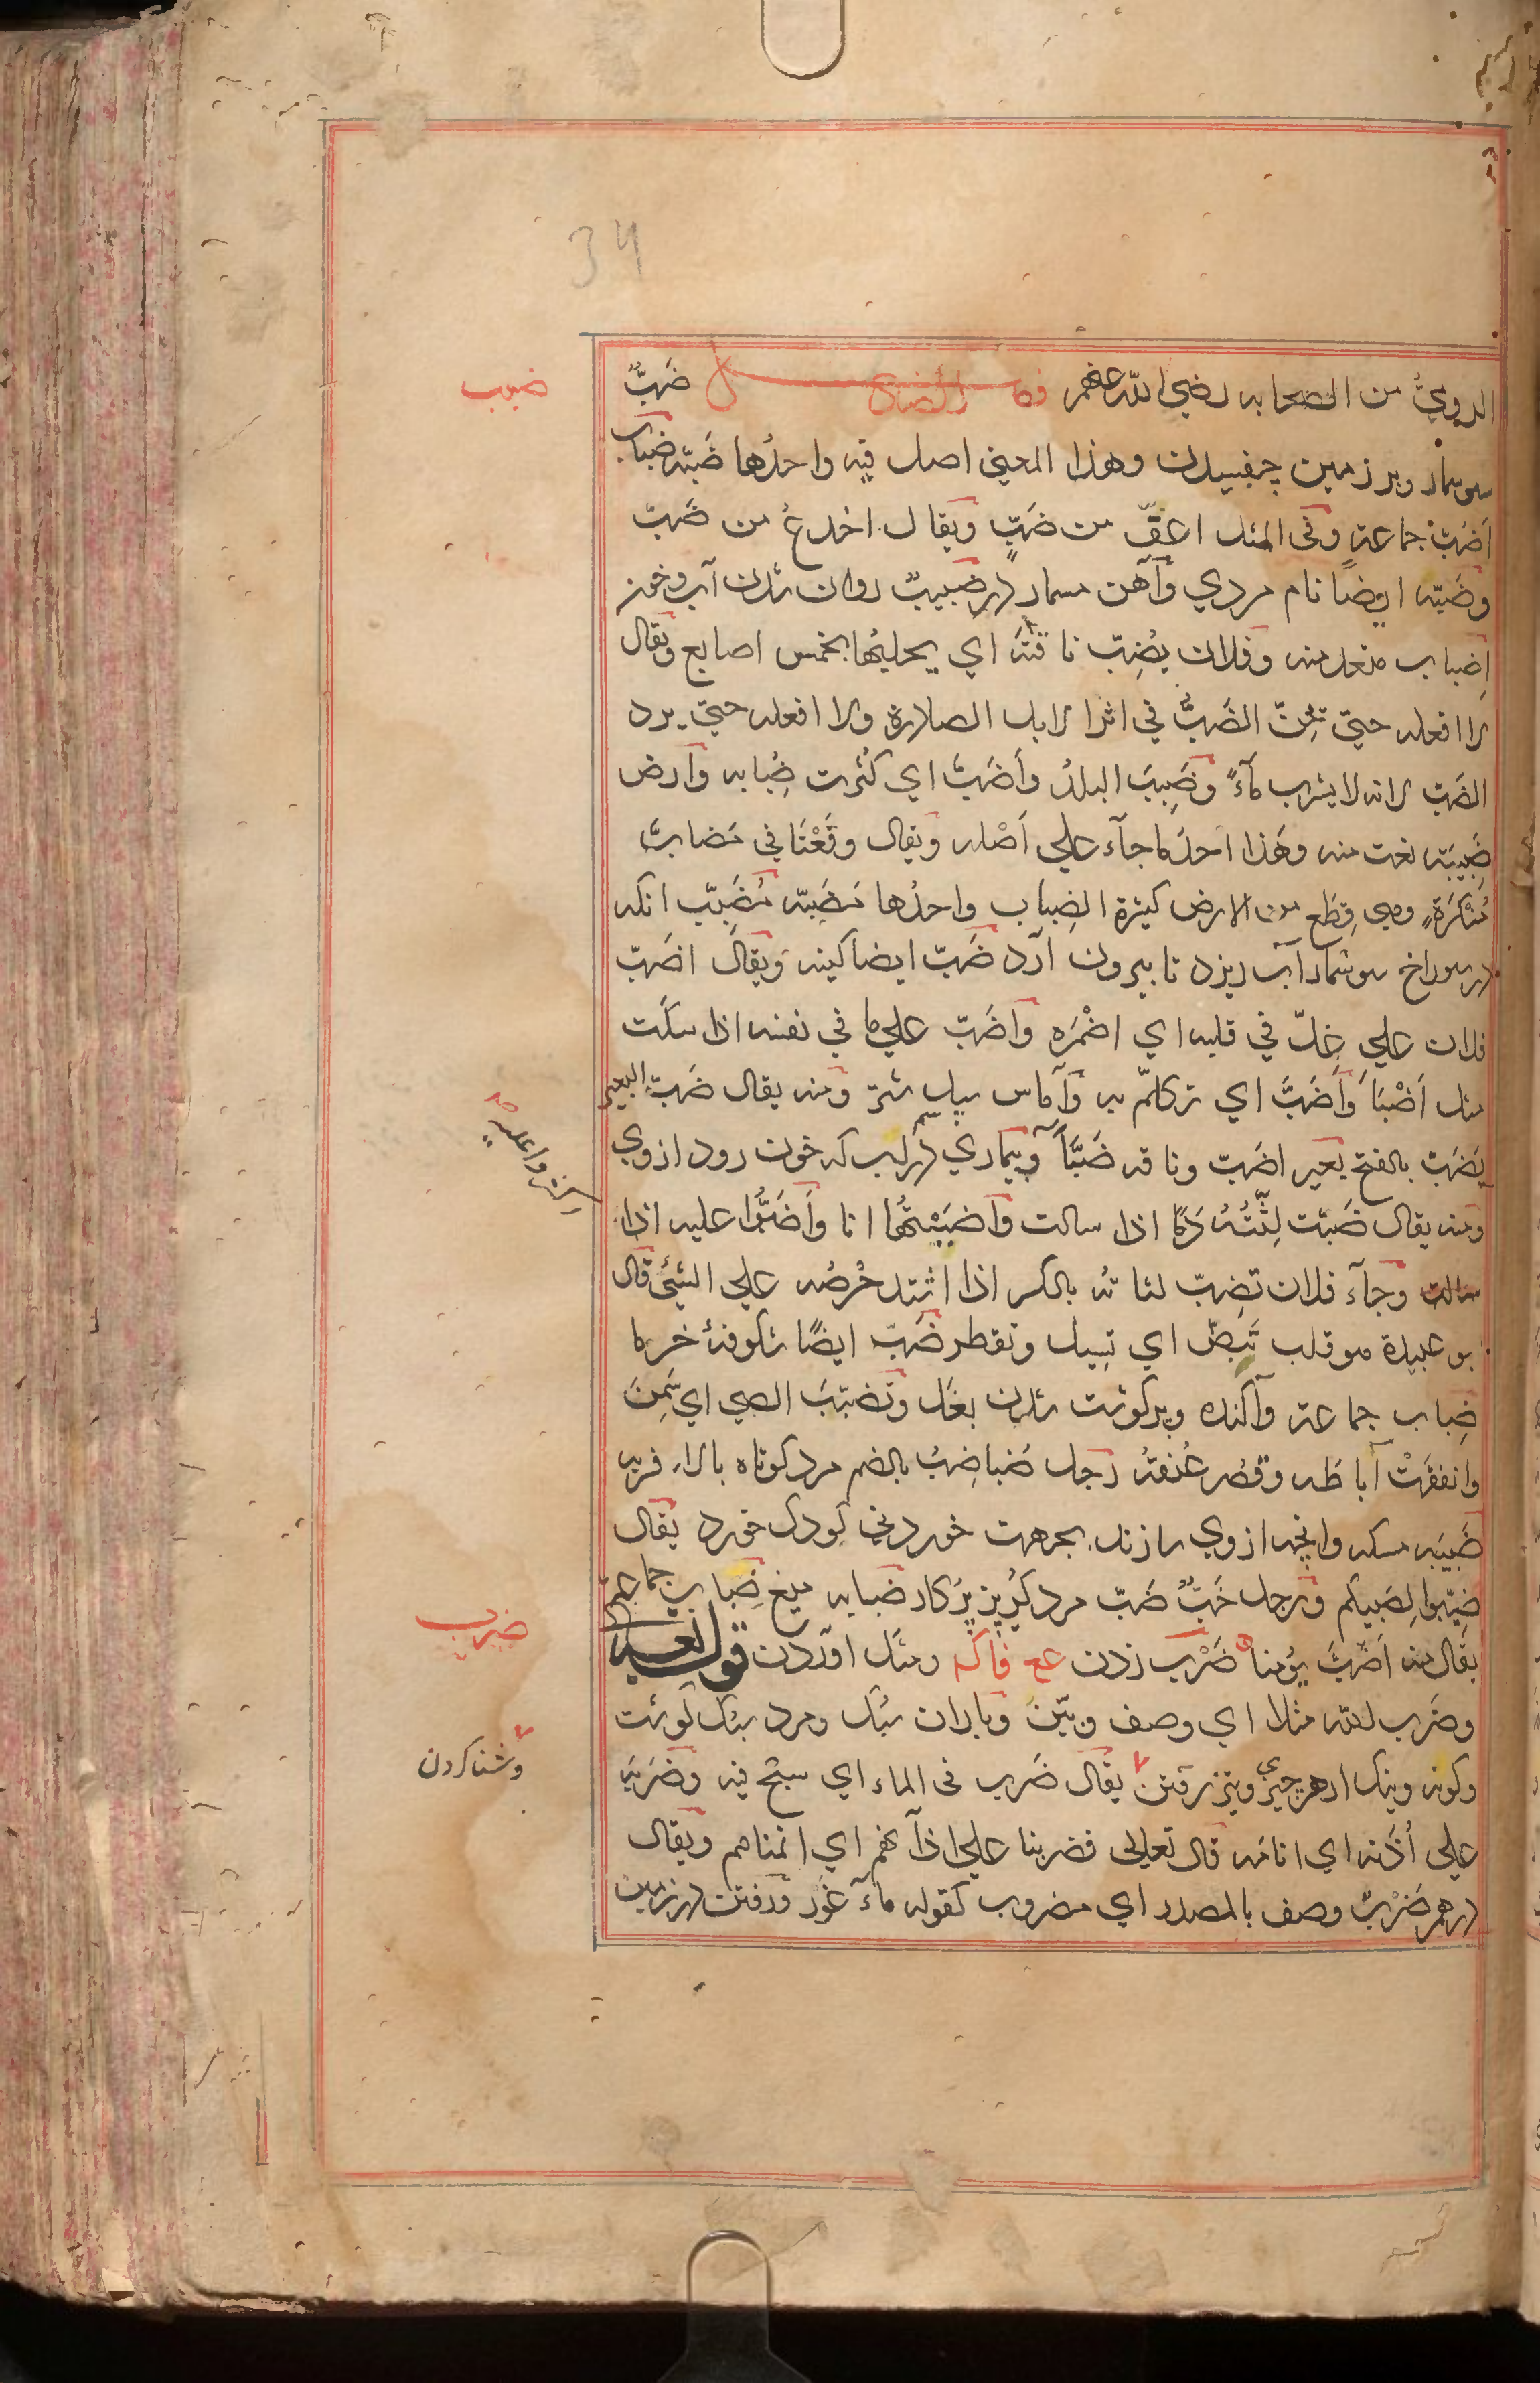 34
ضبب
الدوي من الصحابه رضي الله عنهم فصل الضاد ضَبٌّ
سوسمار وبر زمين چفسيدن وهذا المعني اصل فيه واحدُها ضَبّه ضباب
اَضُبّ جماعة وفى المثل اعقّ من ضَبٍّ ويقال اخدعُ من ضَبّ
وضَبّه ايضاً نام مردي وآهن مسمار در ضَبيبٌ روان شدن آب وخون
اِضباب متعد منه وفلان يُضِبّ ناقتَه اي يحلبُها بخمس اصابع ويقال
لا افعله حتي تحِنّ الضَبُّ في اثر الابل الصادرة ولا افعله حتي يرد
الضب لانه لا يشرب مآءً وضَبِبَ البلدُ وأَضَبَّ اي كثُرت ضِبابه وارض
ضَبِبَه نعت منه وهذا احد ما جآء علي اَصْله ويقال وقَعْنَا في مَضابَّ
مُنْكَرَةٍ وهي قِطَع من الارض كثيرة الضِباب واحدُها مَضَبّه مُضَبِّب انكه
در سوراخ سوسمار آب ريزد تا بيرون آرد ضَبّ ايضا كينه ويقال اضَبّ
فلان علي غِلّ في قلبه اي اضْمَرَه واَضَبّ علي ما في نفسه اذا سكَت
مثل اَضْبَأ وأَضَبَّ اي تكلّم به وآماس سپل شتر ومنه يقال ضَبّ البعير
يَضَبّ بالفتح بعير اضَبّ وناقه ضَبَّآ وبيماري در لب كه خون رود ازوي
ومنه يقال ضَبّت لِثَتُهُ دَمًا اذا سالت واضبَبْتُها انا وأَضَبُّوا عليه اذا
سالت وجآء فلان تضِبّ لثاته بالكسر اذا اشتد حُرْصُه علي الشيئ قال
ابو عبيدة هو قلب تَبِضّ اي تسيل وتقطر ضَبّ ايضًا شكوفهٔ خرما
ضِباب جماعة وآكنده وپر كوشت شدن بغَل وتَضَبّبَ الصبي اي سَمِنَ
وانفتقَتْ آباطه وقصُر عُنقهُ رَجل ضُباضِبٌ بالضم مرد كوتاه بالا فربه
ضَبِيبَه مسكه وانچه ازوي سازند بجهت خوردني كودك خورد يقال
ضَبِّبوا لِصَبيكم ورجل خَبٌّ ضَبّ مرد كُربز پُركار ضبابه ميغ ضَباب جماعة
يقال منه اَضَبَّ يومُنا ضَرْب زدن ومثَل اوردن قوله تعالي
وضَرَب لله مثلا اي وصف وبيّن وباران سُبك ومرد سبك كوشت
وكونه ونيك از هر چيزي وتيز رفتن يقال ضَرب فى الماء اي سبَح فيه وضَرَبَه
علي اُذُنه اي انامَه قال تعالي فضربنا علي اذآنهم اي انمناهم ويقال
درهم ضَرْبٌ وصف بالمصدر اي مضروب كقوله مآء غَوْر ورفتن در زمين
ضرب
وشنا كردن